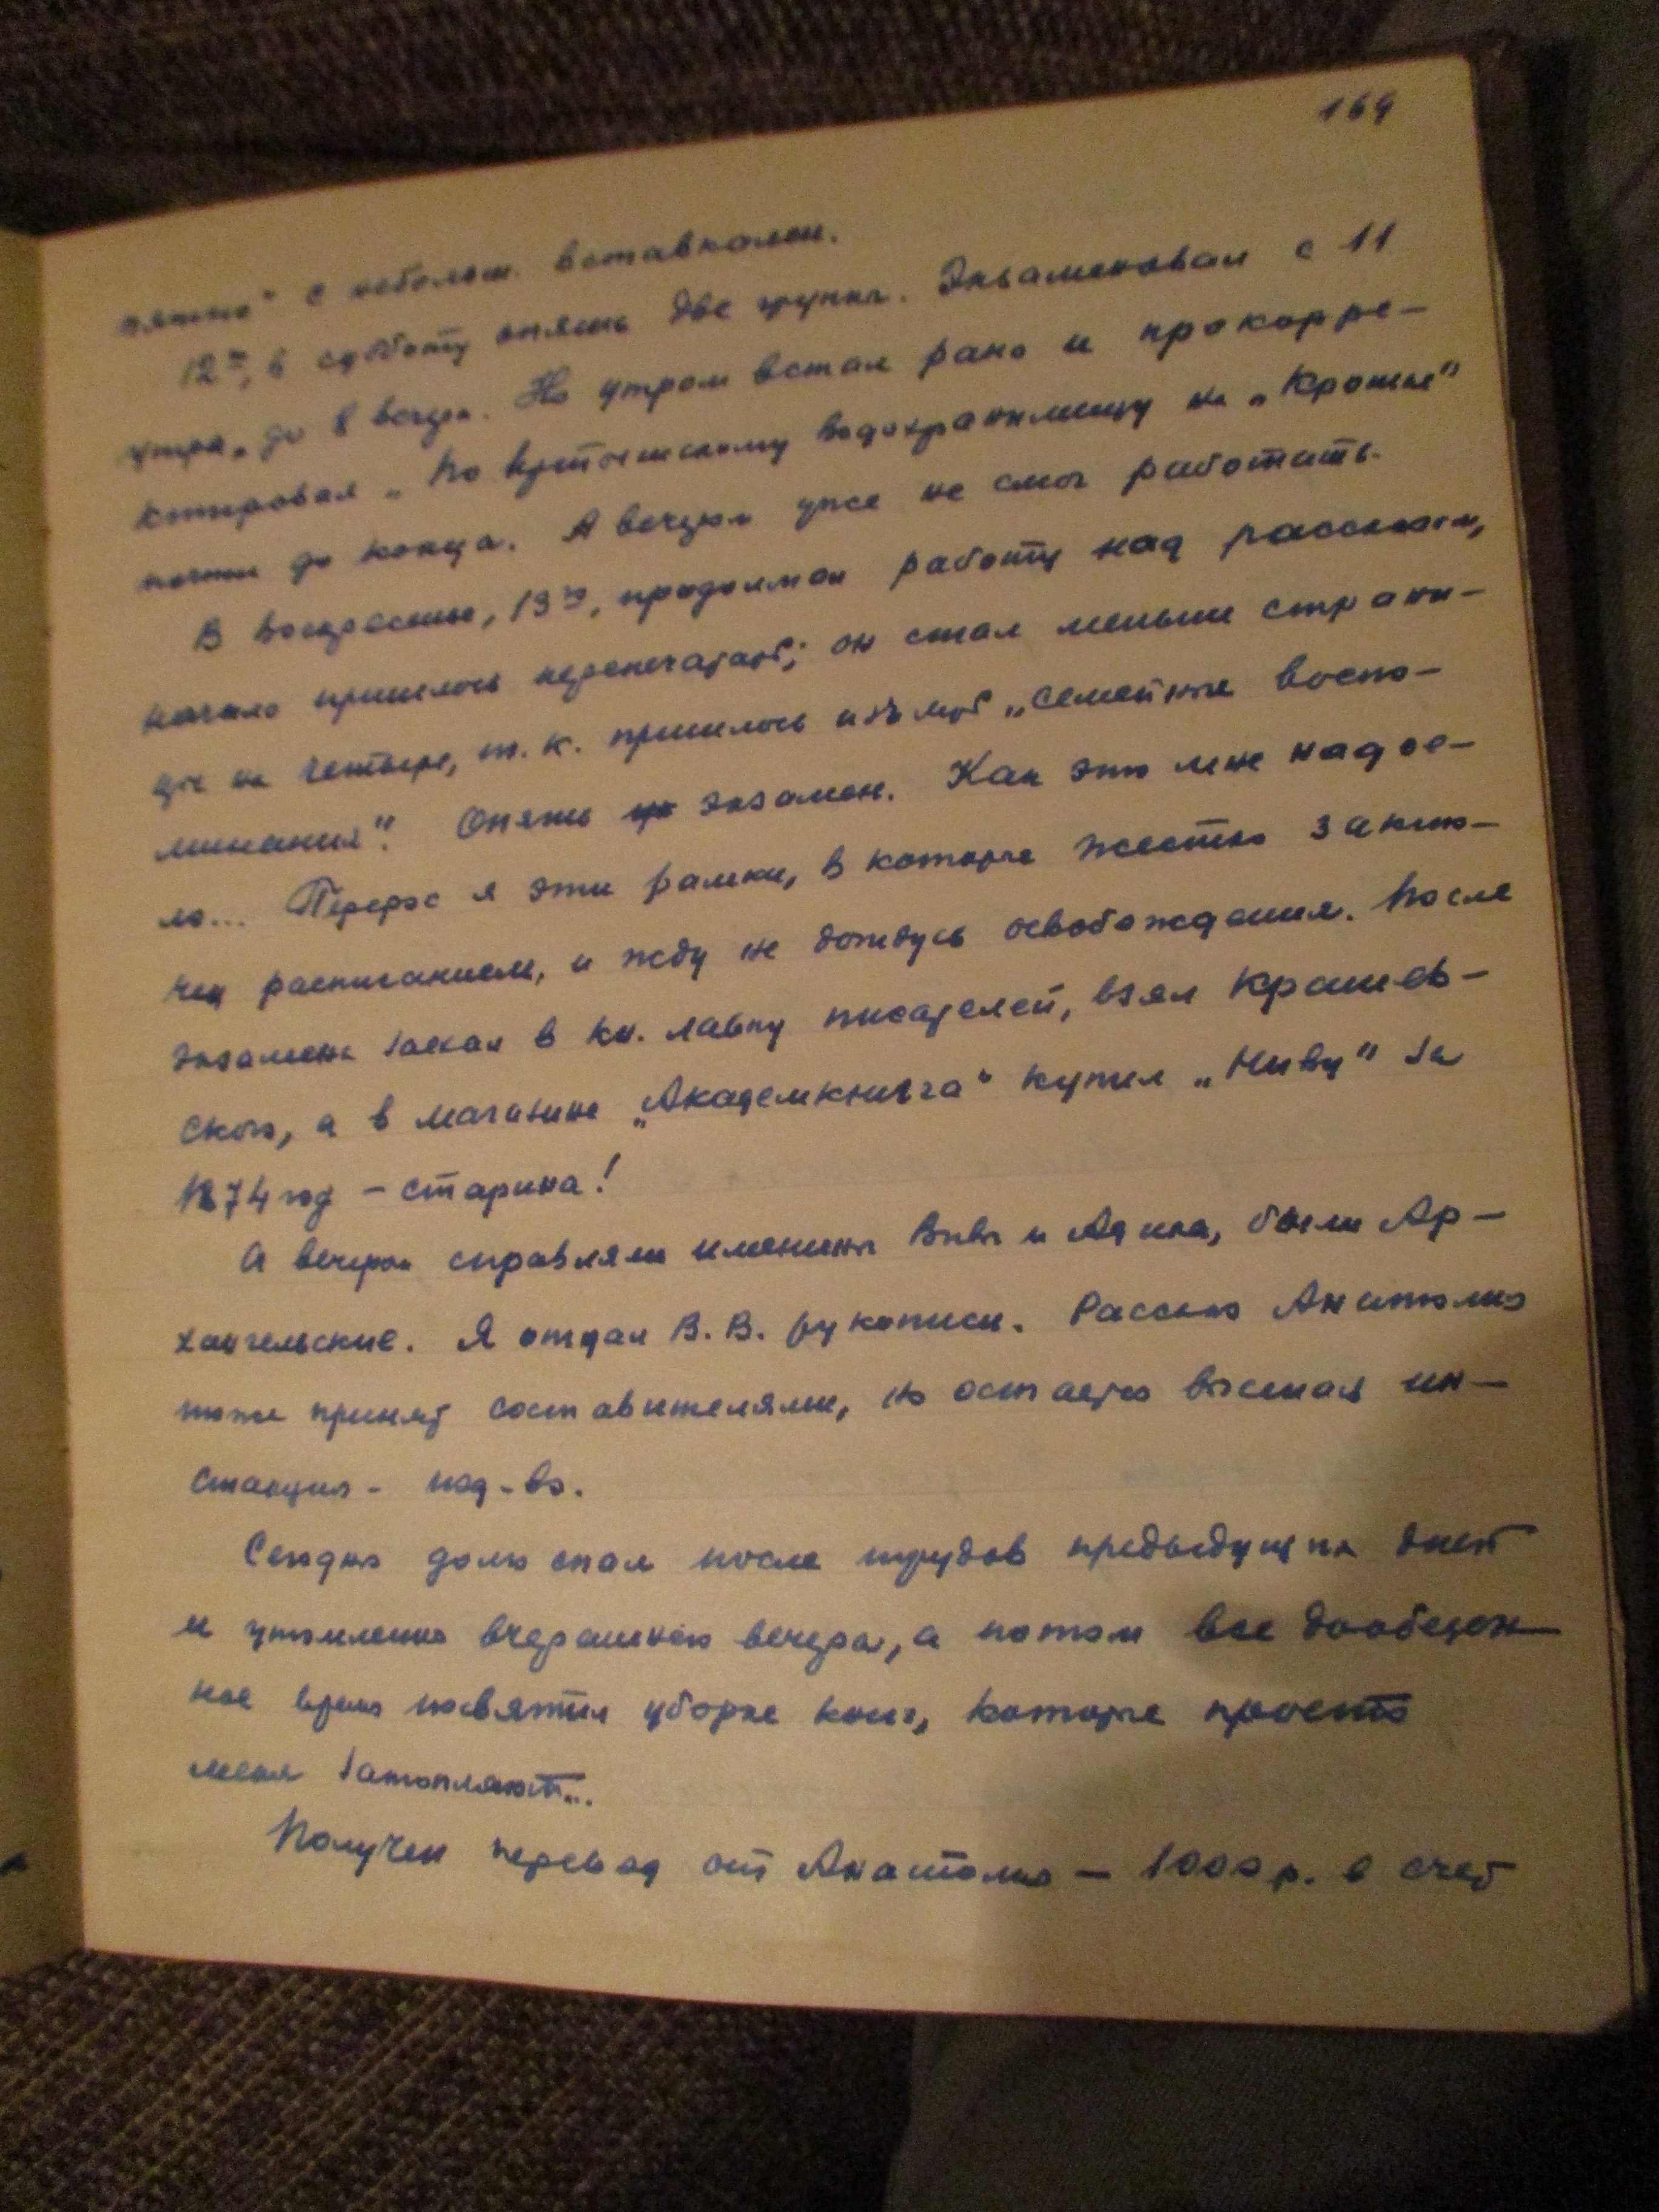 169
пятно" с небольш. вставками.
12го, в субботу опять две группы. Экзаменовал с 11
утра до 8 вечера. Но утром встал рано и прокорре-
ктировал „По водохранилищу на „Кротме"
почти до конца. А вечером уже не смог работать.
В воскресенье, 13го, продолжал работу над рассказом,
начало пришлось перепечатать; он стал меньше страни-
цы на четыре, т.к. пришлось изъять „Семейные воспо-
минания". Опять экзамен. Как это мне надое-
ло... Перерос я эти рамки, в которые жестко заклю-
чен расписанием, и жду не дождусь освобождения. После
экзамена заехал в кн. лавку писателей, взял Крашев-
ского, а в магазине „Академкнига" купил „Ниву" за
1874 год – старина!
А вечером справляли именины Вивы и Адика, были Ар-
хангельские. Я отдал В.В. рукописи. Рассказ Анатолия
тоже принят составителями, но остается высшая ин-
станция - изд-во.
Сегодня долго спал после трудов предыдущих дней
и утомления вчерашнего вечера, а потом все дообеден-
ное время посвятил уборке книг, которые просто
меня затопляют...
Получен перевод от Анатолия – 1000 р. в счет